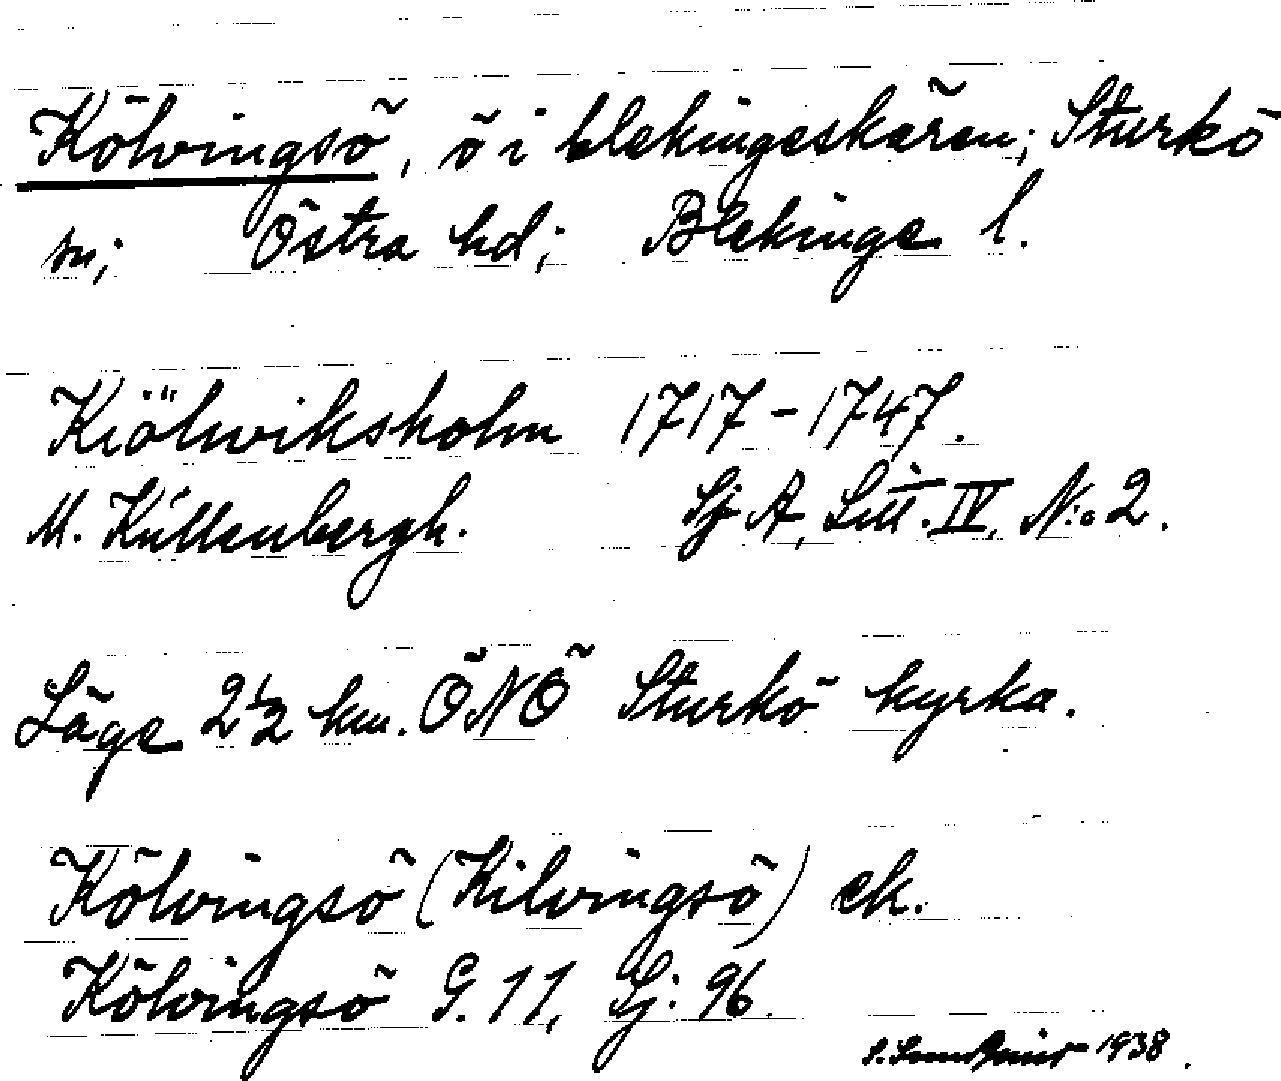 Kölvingsö, ö i blekingeskären; Sturkö
sn; Östra hd; Blekinge l.
Kiölwiksholm 1717-1747.
M. Küllenbergh. Sj A, Litt. IV, N:o 2.
Läge 2 1/2 km. ÖNÖ Sturkö kyrka.
Kölvingsö (Kilvingsö) ek.
Kölvingsö G. 11, Sj: 96.
S. 1938.